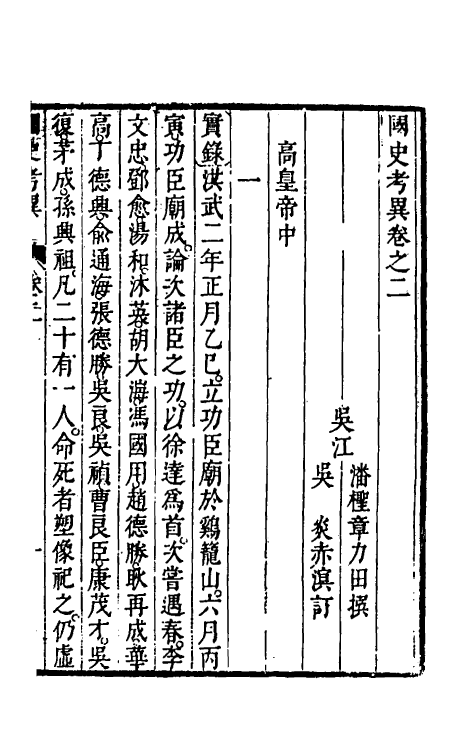 國史考異卷之二
吳江
潘檉章力田撰
吳炎赤溟訂
高皇帝中
一
實錄洪武二年正月乙巳立功臣廟於鷄籠山六月丙
寅功臣廟成論次諸臣之功以徐達爲首次嘗遇春李
文忠鄧愈湯和沐英胡大海馮國用趙德勝耿再成華
高丁德興俞通海張德勝吳良吳禎曹良臣康茂才吳
復茅成孫興祖凡二十有一人命死者塑像祀之仍虛
史考異
卷二
一